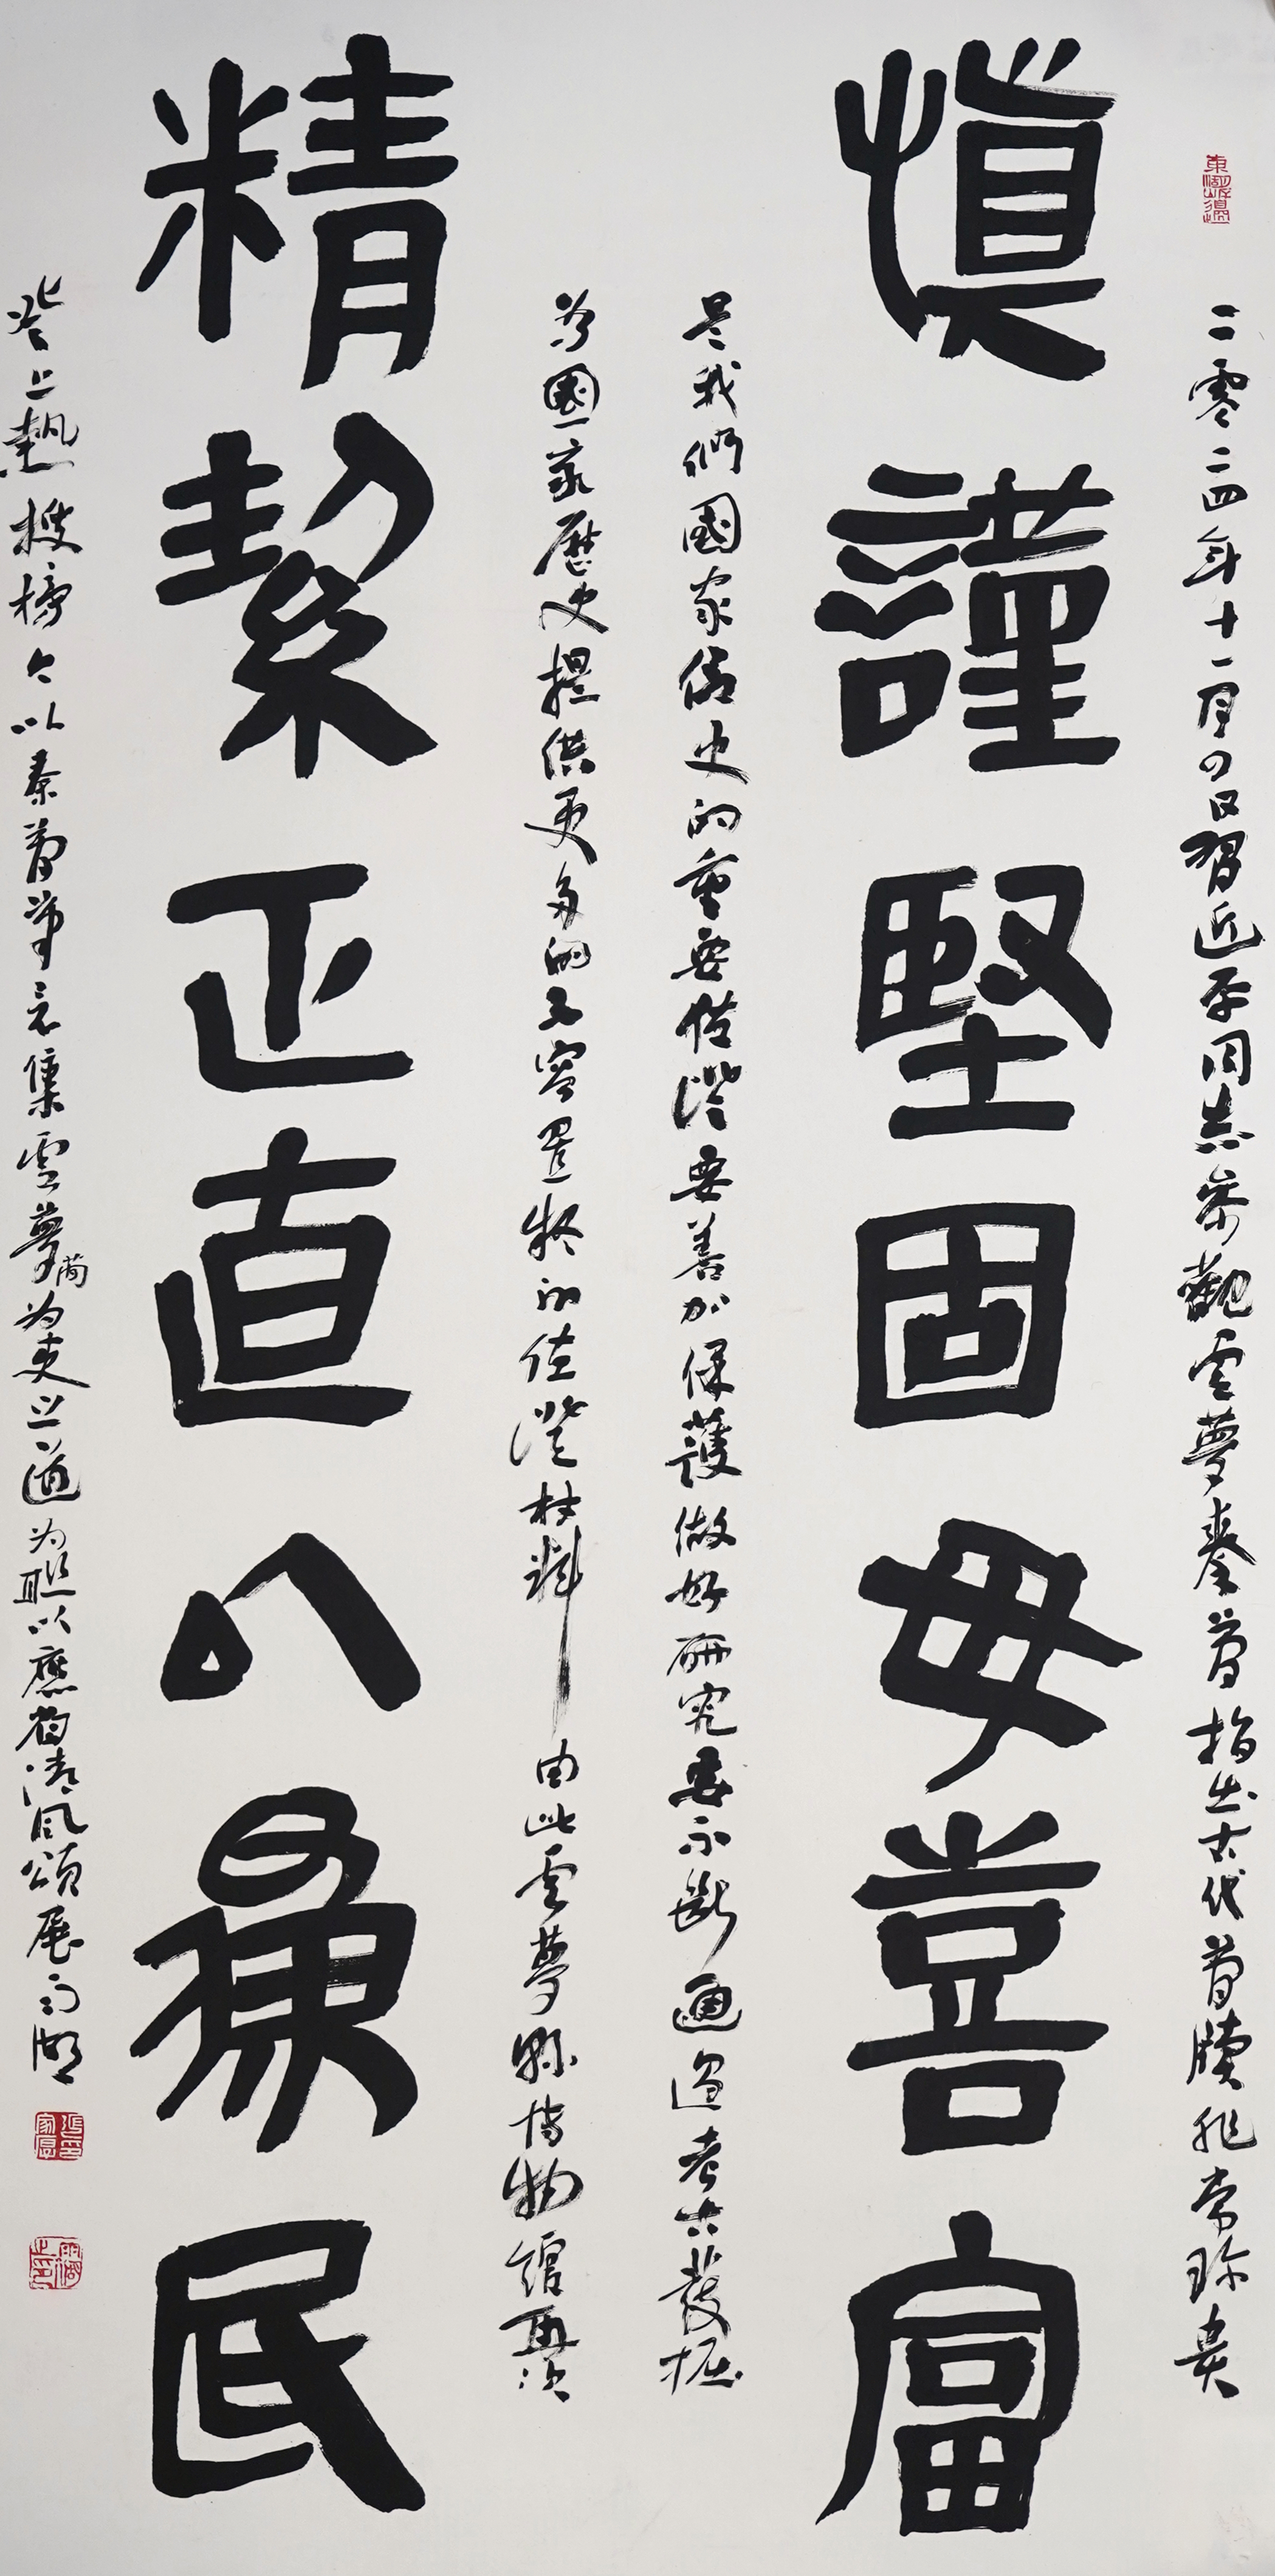 慎謹堅固毋喜富
精絜正直以為民
二零二四年十一月四日習近平同志參觀雲夢秦簡指出古代簡牘非常珍貴
是我們國家信史的重要佐證要善加保護做好研究要不斷通過考古發掘
為國家歷史提供更多的不容置疑的佐證材料由此雲夢縣博物館再次
登上熱搜榜今以秦簡筆意集雲夢簡為吏之道為聯以應荀清風頌展雨湖